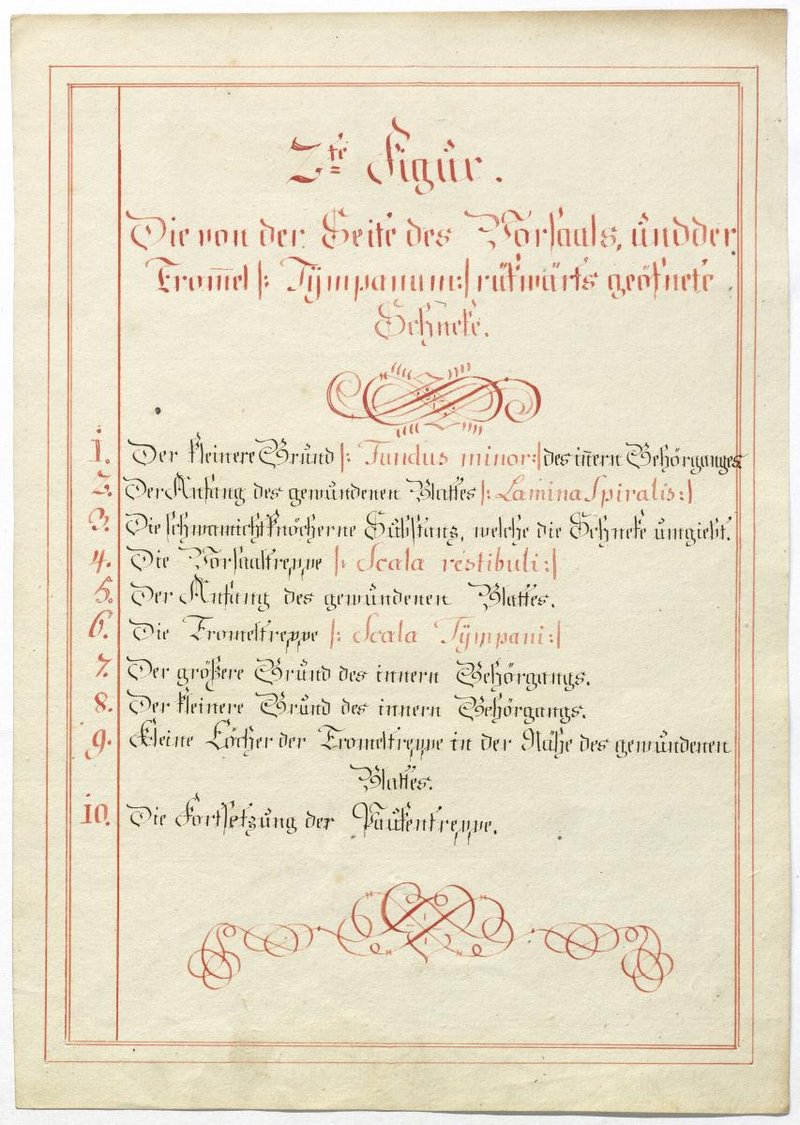 2te Figur.
Die von der Seite des Vorsaals, und der
Trom̄el |: Tÿmpanum :| rükwärts geöfnete
Schneke.
1. Der kleinere Grund |: Fundus minor :| des in̄ern Gehörganges
2. Der Anfang des gewundenen Blattes |: Lamina Spiralis :|
3. Die schwamicht knöcherne Substanz, welche die Schneke umgiebt.
4. Die Vorsaaltreppe |: Scala vestibuli :|
5. Der Anfang des gewundenen Blattes.
6. Die Tromeltreppe |: Scala Tÿmpani :|
7. Der größere Grund des innern Gehörgangs.
8. Der kleinere Grund des innern Gehörgangs.
9. Kleine Löcher der Tromeltreppe in der Nähe des gewundenen
Blattes.
10. Die Fortsetzung der Paukentreppe.